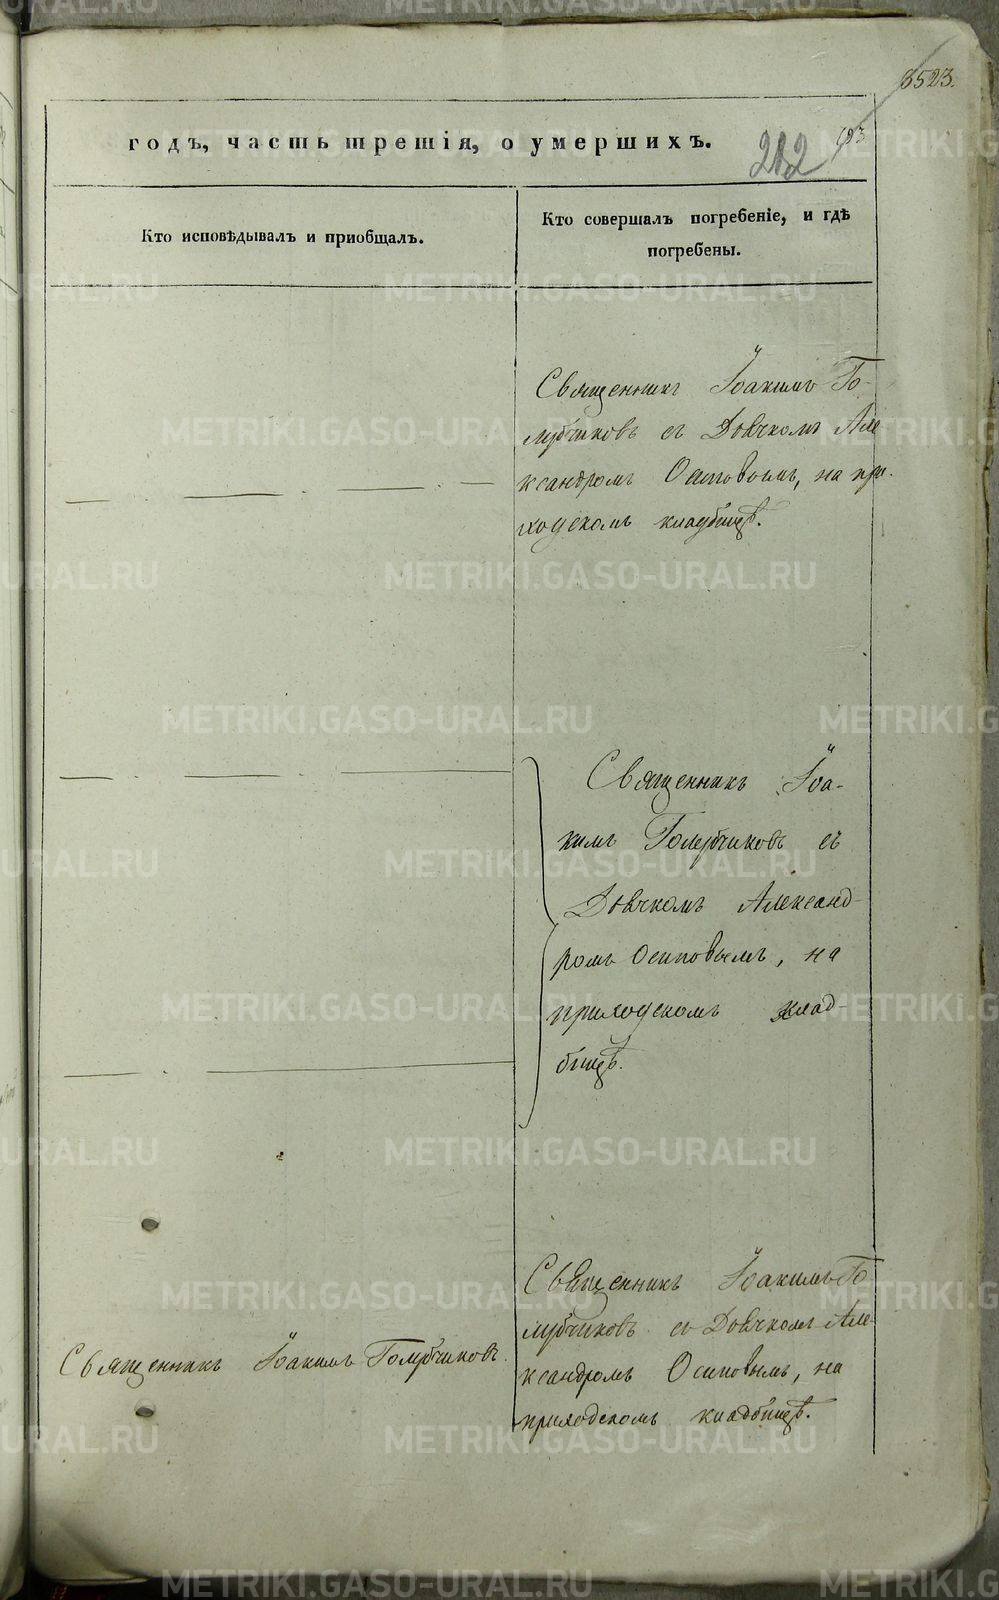 3523.
годъ, часть третія, о умершихъ.
202
193
Кто исповѣдывалъ и приобщалъ.
Кто совершалъ погребеніе, и гдѣ
погребены.
Священникъ Іоакимъ Го-
лубчиковъ съ Дьячкомъ Але
ксандромъ Осиповымъ, на при-
ходскомъ кладбищѣ.
Священникъ Іоа-
кимъ Голубчиковъ съ
Дьячкомъ Александ-
ромъ Осиповымъ, на
приходскомъ клад-
бищѣ.
Священникъ Іоакимъ Голубчиковъ.
Священникъ Іоакимъ Го
лубчиковъ со Дьячкомъ Але-
ксандромъ Осиповымъ, на
приходскомъ кладбищѣ.
METRIKI.GASO-URAL.RU